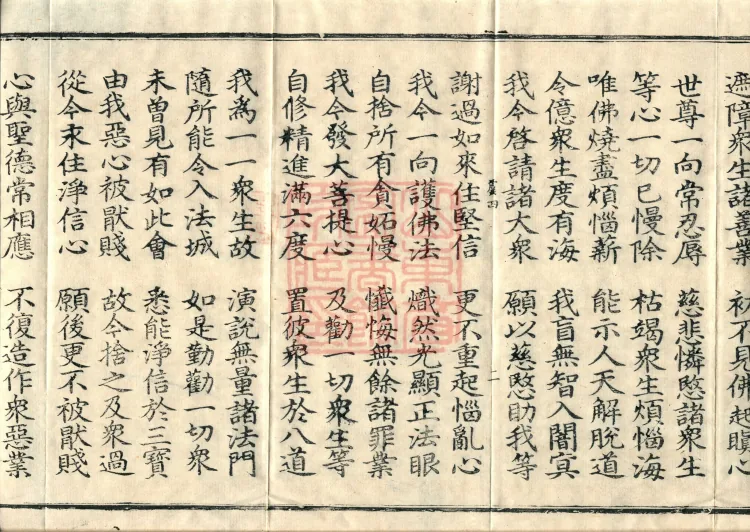 遮障衆生諸善業　初不見佛起瞋心
世尊一向常忍辱　慈悲憐愍諸衆生
等心一切已慢除　枯竭衆生煩惱海
唯佛燒盡煩惱薪　能示人天解脫道
令億衆生度有海　我盲無智入闇冥
我今啓請諸大衆　願以慈愍助我等
謝過如來住堅信　更不重起惱亂心
我今一向護佛法　熾然光顯正法眼
自捨所有貪妬慢　懺悔無餘諸罪業
我今發大菩提心　及勸一切衆生等
自修精進滿六度　置彼衆生於八道
我爲一一衆生故　演說無量諸法門
隨所能令入法城　如是勤勸一切衆
未曾見有如此會　悉能淨信於三寶
由我惡心被猒賤　故今捨之及衆過
從今末住淨信心　願後更不被猒賤
心與聖德常相應　不復造作衆惡業